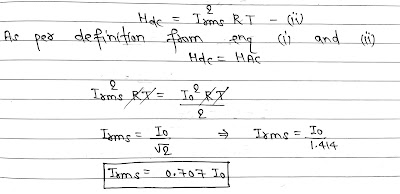 Hdc = I²rms RT – (ii)
As per definition from enq (i) and (ii)
Hdc = HAC
I²rms RT = I₀² RT / 2
Irms = I₀/√2 ⇒ Irms = I₀/1.414
Irms = 0.707 I₀